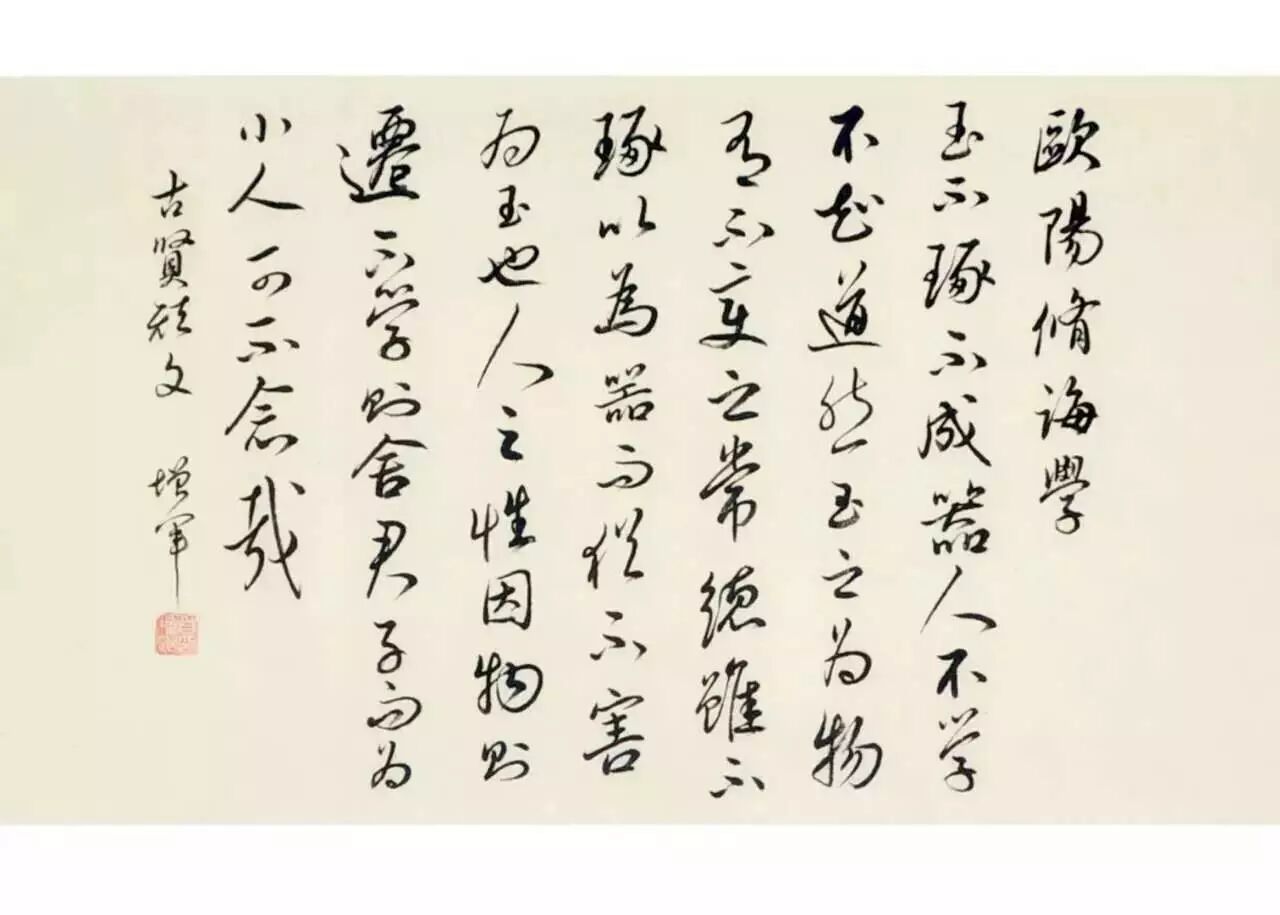 歐陽脩誨學
玉不琢不成器人不学
不知道然玉之为物
有不变之常德雖不
琢以為器而猶不害
为玉也人之性因物则
遷不学则舍君子而为
小人可不念哉
古賢文 增军